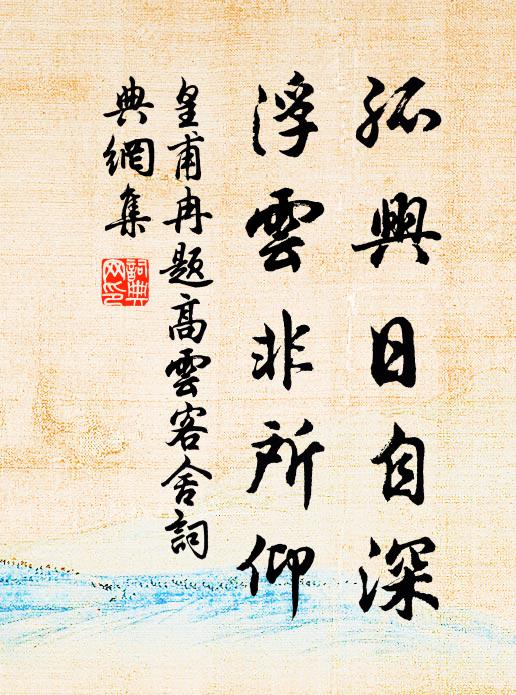 孤興日自深
浮雲非所仰
皇甫冉題高雲客舍詞
典網集
詞典
网印